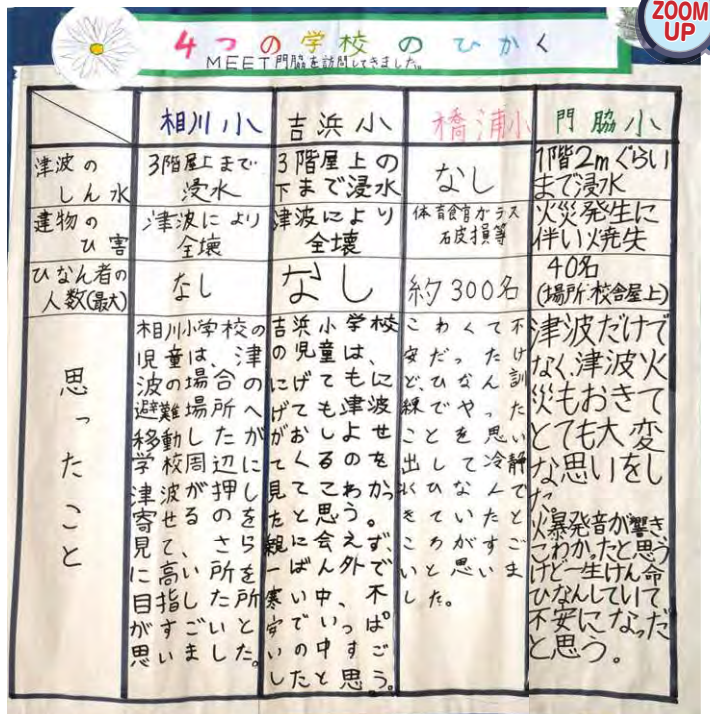 ZOOM UP
4つの学校のひかく
MEET門脇を訪問してきました。
相川小
吉浜小
橋浦小
門脇小
津波の
しん水
3階屋上まで
浸水
3階屋上の
下まで浸水
なし
1階2mぐらい
まで浸水
建物の
ひ害
津波により
全壊
津波により
全壊
体育館ガラス
破損等
火災発生に
伴い焼失
ひなん者の
人数(最大)
なし
なし
約300名
40名
(場所:校舎屋上)
思ったこと
相川小学校の
児童は、津
波の場合の
避難場所へ
移動したが
学校周辺に
津波が押し
寄せるのを
見て、さら
に高い所を
目指した所
がすごいと
思いました。
吉浜小学校
の児童は、
にげてもに
げても津波
がおしよせ
てくるのを
見てこわかっ
たと思う。
親に会えず、
一ばん外で
寒い中、不
安でいっぱ
いの中すご
したと思う。
こわくて不
安だったけ
ど、ひなん訓
練でやった
ことを思い
出して冷静
にひなんで
きていたと
ころがすご
いと思いま
した。
津波だけで
なく、津波火
災もおきて
とても大変
な思いをし
た。
火爆発音が響き
こわかったと思う
けど一生けん命
ひなんしていて
不安になっだ
と思う。